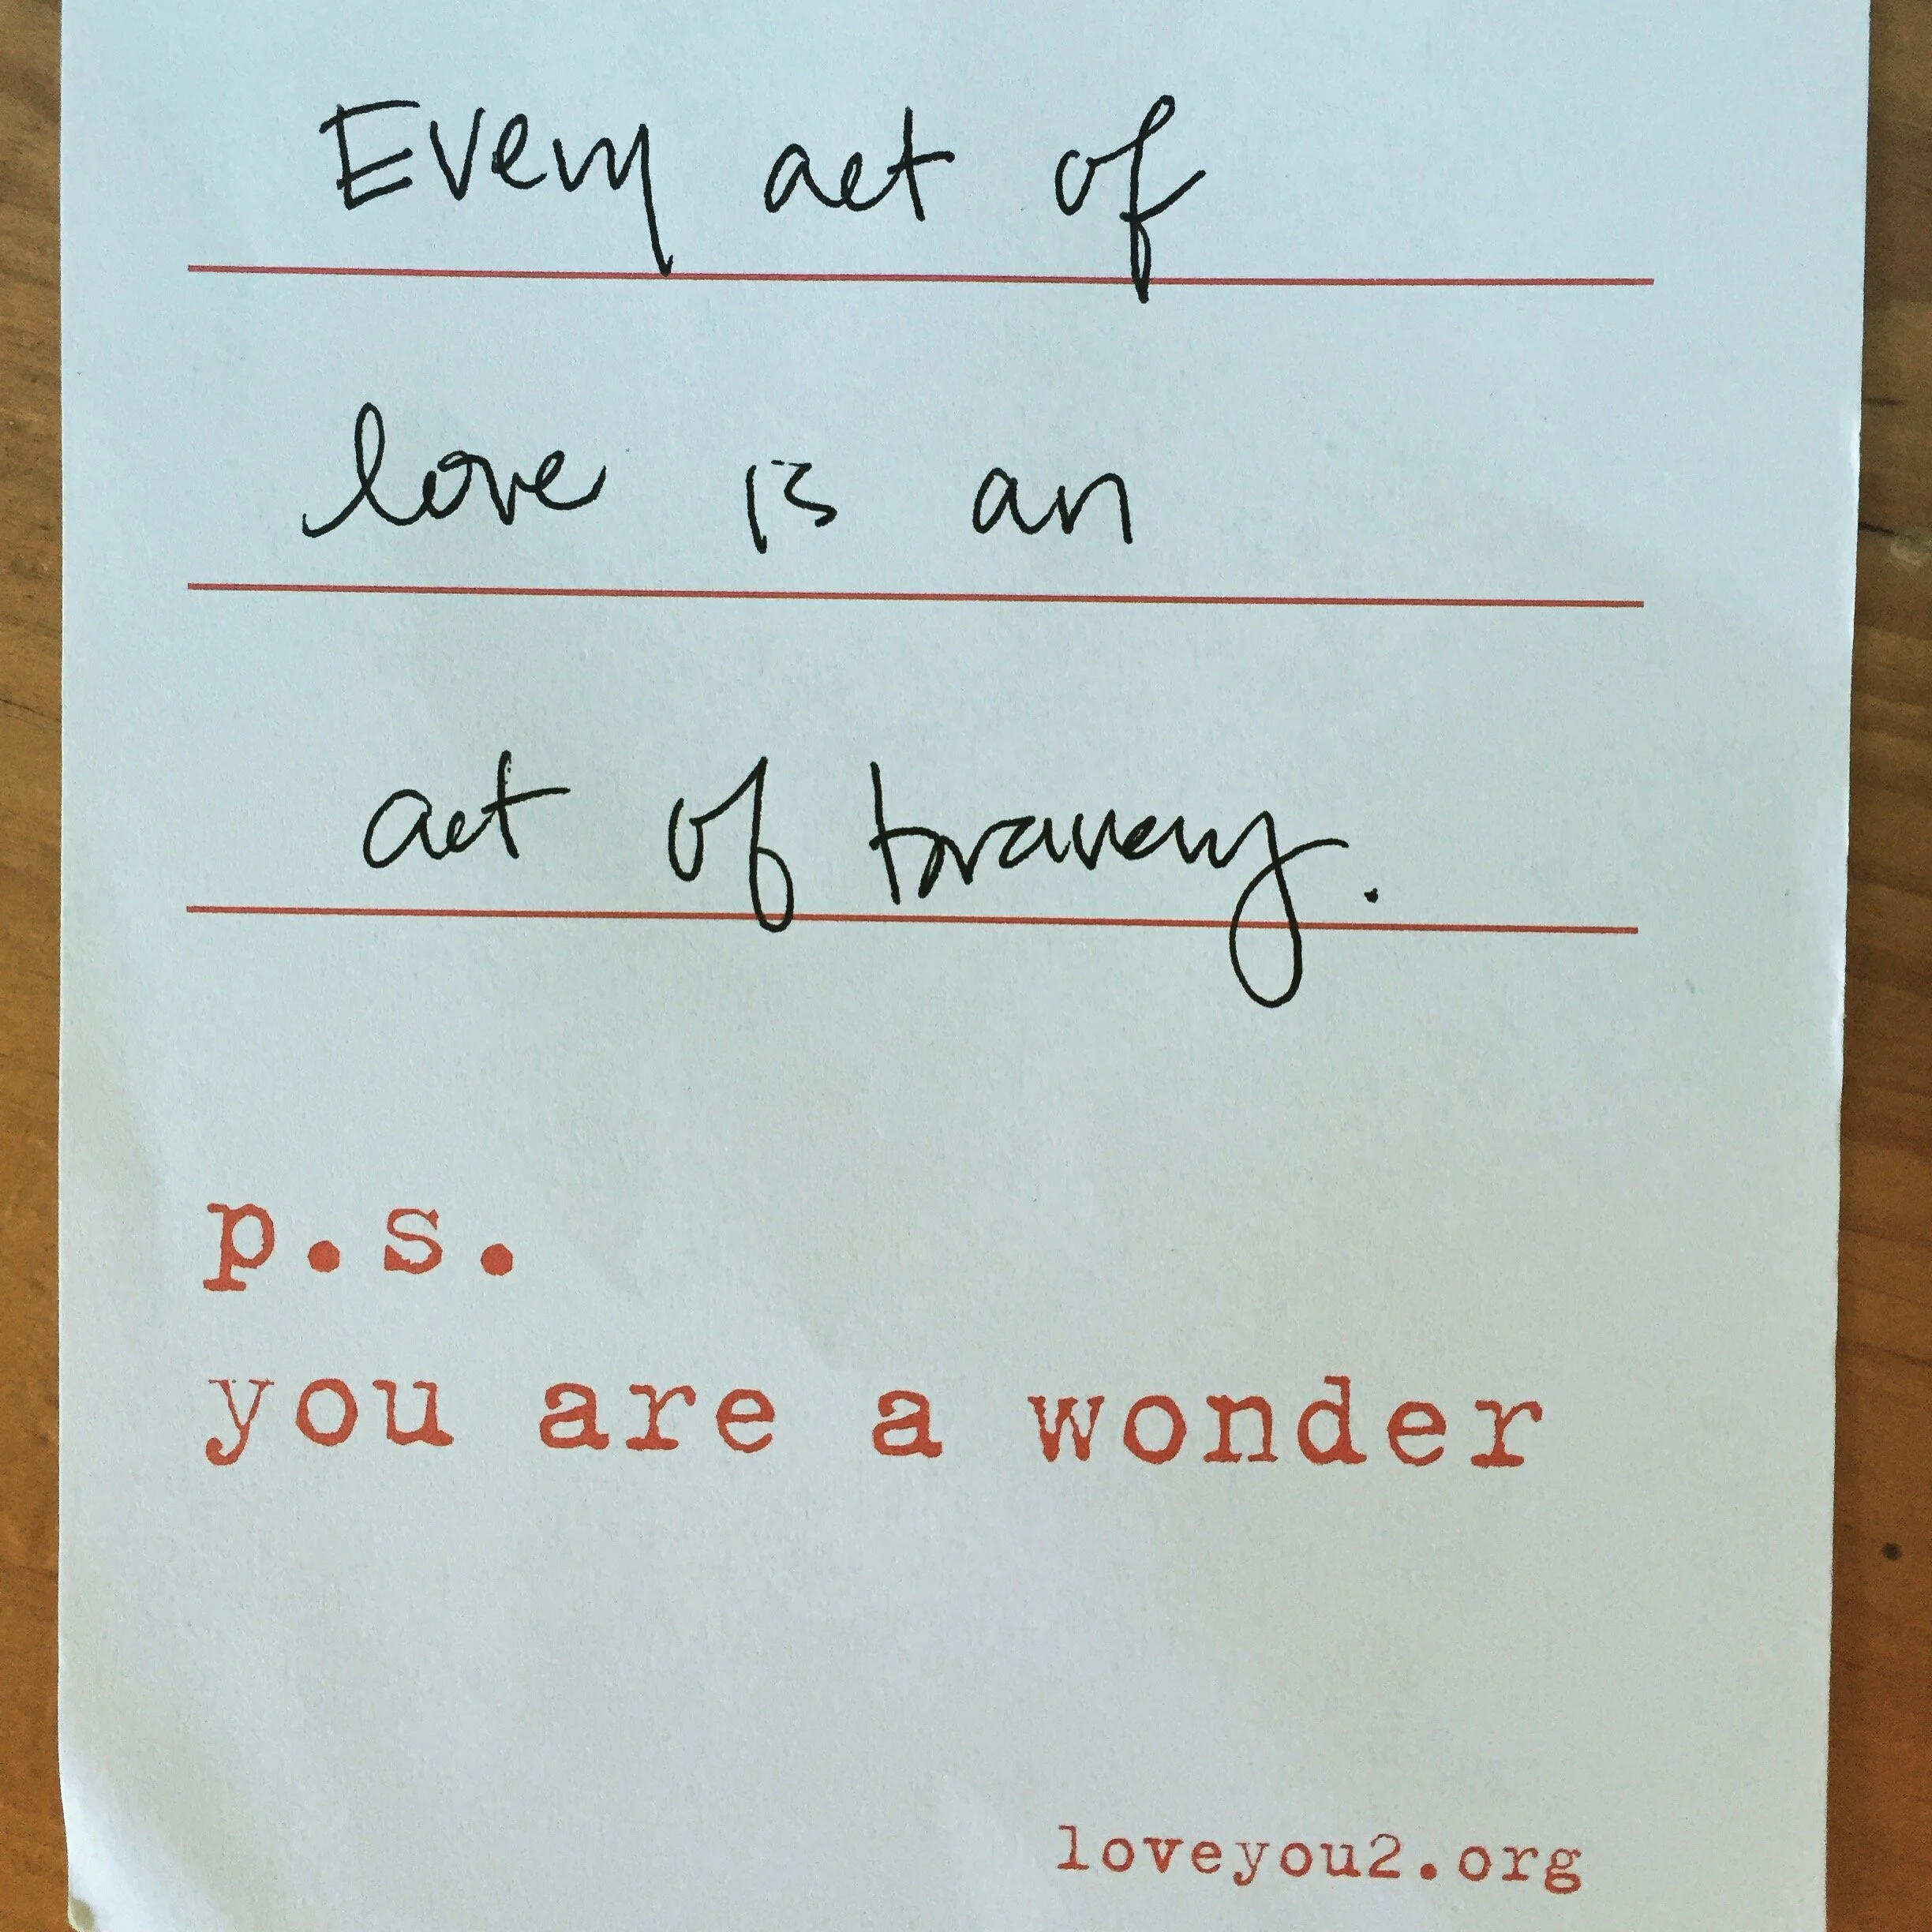 Every act of
love is an
act of bravery.
p.s.
you are a wonder
loveyou2.org